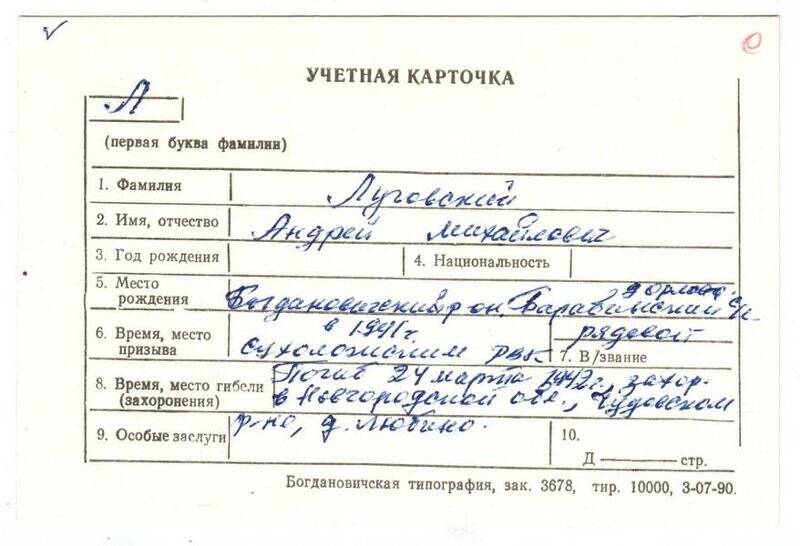 УЧЕТНАЯ КАРТОЧКА
Л
(первая буква фамилии)
1. Фамилия Луговский
2. Имя, отчество Андрей Михайлович
3. Год рождения 4. Национальность
д. Орлова
5. Место рождения Богдановический р-он Баравинский с/с
6. Время, место призыва в 1941г. Сухоложским РВК
рядовой
7. В/звание
8. Время, место гибели (захоронения) Погиб 24 марта 1942г., захор.
в Новгородской обл., Чудовском
9. Особые заслуги р-но, д. Любино.
10.
Д — стр.
Богдановичская типография, зак. 3678, тир. 10000, 3-07-90.